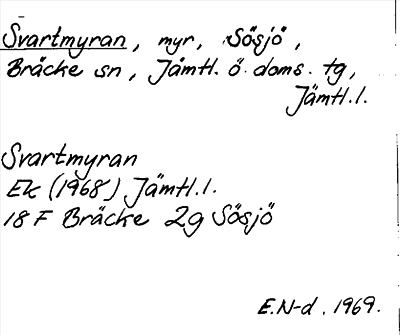 Svartmyran, myr, Sösjö,
Bräcke sn, Jämtl. ö. doms. tg,
Jämtl.l.
Svartmyran
Ek (1968) Jämtl.l.
18 F Bräcke 2g Sösjö
E.N-d. 1969.